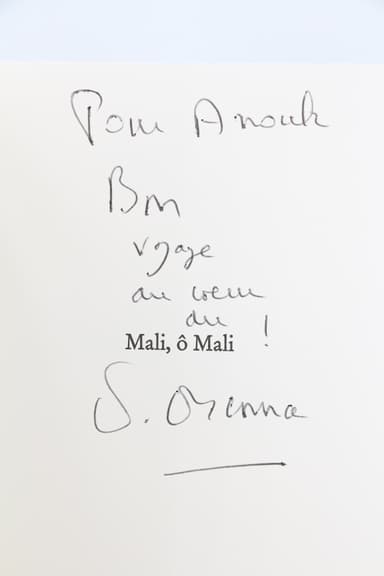 Pour Anouk
Bon
voyage
au coeur
du
Mali, ô Mali !
S. Orsenna